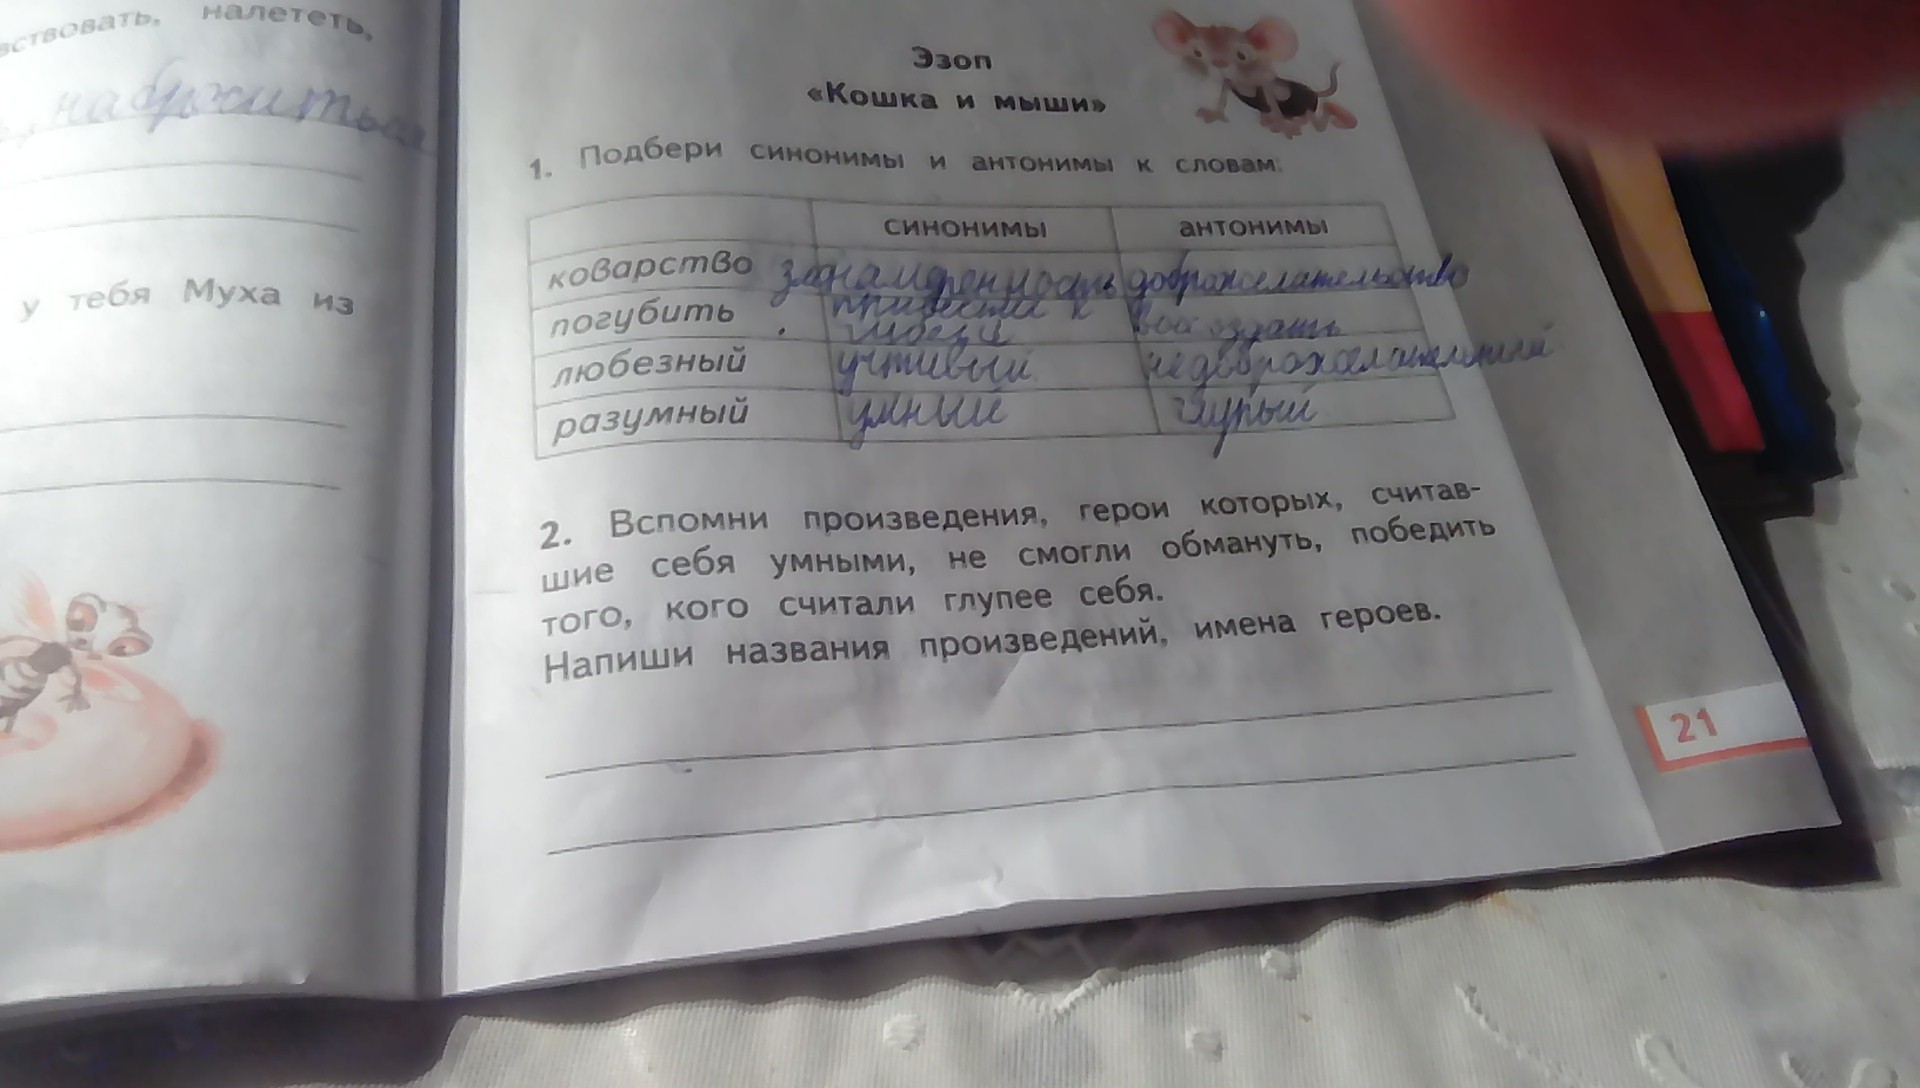 вствовать, налететь,
наброситься
у тебя Муха из
Эзоп
«Кошка и мыши»
1. Подбери синонимы и антонимы к словам:
синонимы антонимы
коварство злонамеренность доброжелательство
погубить привести к воссоздать
любезный учтивый недоброжелательный
разумный умный глупый
2. Вспомни произведения, герои которых, считав-
шие себя умными, не смогли обмануть, победить
того, кого считали глупее себя.
Напиши названия произведений, имена героев.
21